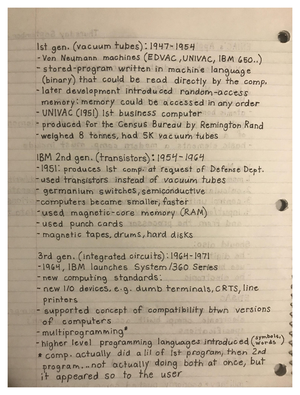 1st gen. (vacuum tubes): 1947-1954
- Von Neumann machines (EDVAC, UNIVAC, IBM 650..)
- stored-program written in machine language
(binary) that could be read directly by the comp.
- later development introduced random-access
memory: memory could be accessed in any order
- UNIVAC (1951) 1st business computer
- produced for the Census Bureau by Remington Rand
- weighed 8 tonnes, had 5K vacuum tubes
IBM 2nd gen. (transistors): 1954-1964
- 1951: produces 1st comp. at request of Defense Dept.
- used transistors instead of vacuum tubes
- germanium switches, semiconductive
- computers became smaller, faster
- used magnetic-core memory (RAM)
- used punch cards
- magnetic tapes, drums, hard disks
3rd gen. (integrated circuits): 1964-1971
- 1964, IBM launches System/360 Series
- new computing standards:
- new I/O devices, e.g. dumb terminals, CRTs, line
printers
- supported concept of compatibility btwn versions
of computers
- multiprogramming*
- higher level programming languages introduced (symbols, words)
* comp. actually did a lil of 1st program, then 2nd
program...not actually doing both at once, but
it appeared so to the user